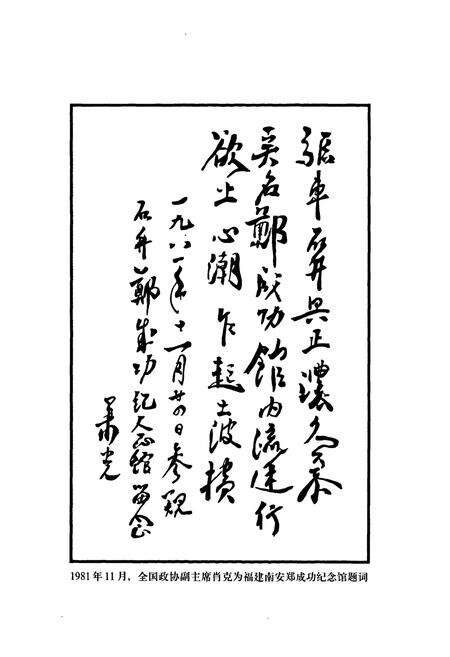 驱車石井兴正濃久慕
英名鄭成功館内流连行
欲止心潮乍起波横
一九八一年十一月廿四日参观
石井鄭成功纪念馆留念
萧克
1981年11月，全国政协副主席肖克为福建南安郑成功纪念馆题词